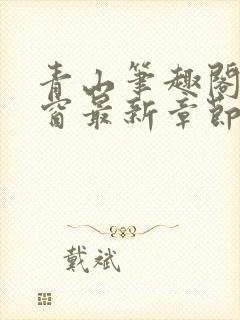 青山筆趣閣
窗最新章節
戴斌